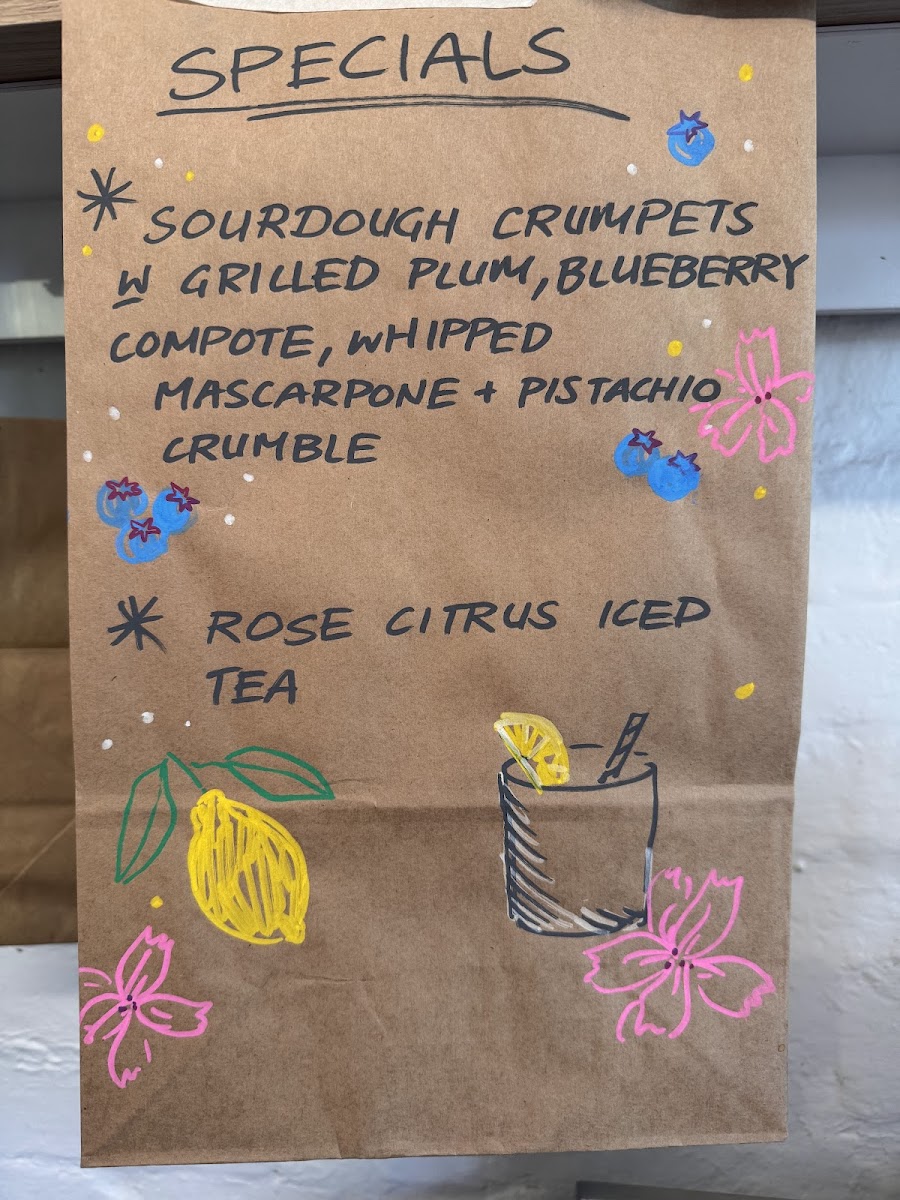 SPECIALS
* SOURDOUGH CRUMPETS
W GRILLED PLUM, BLUEBERRY
COMPOTE, WHIPPED
MASCARPONE + PISTACHIO
CRUMBLE
* ROSE CITRUS ICED
TEA